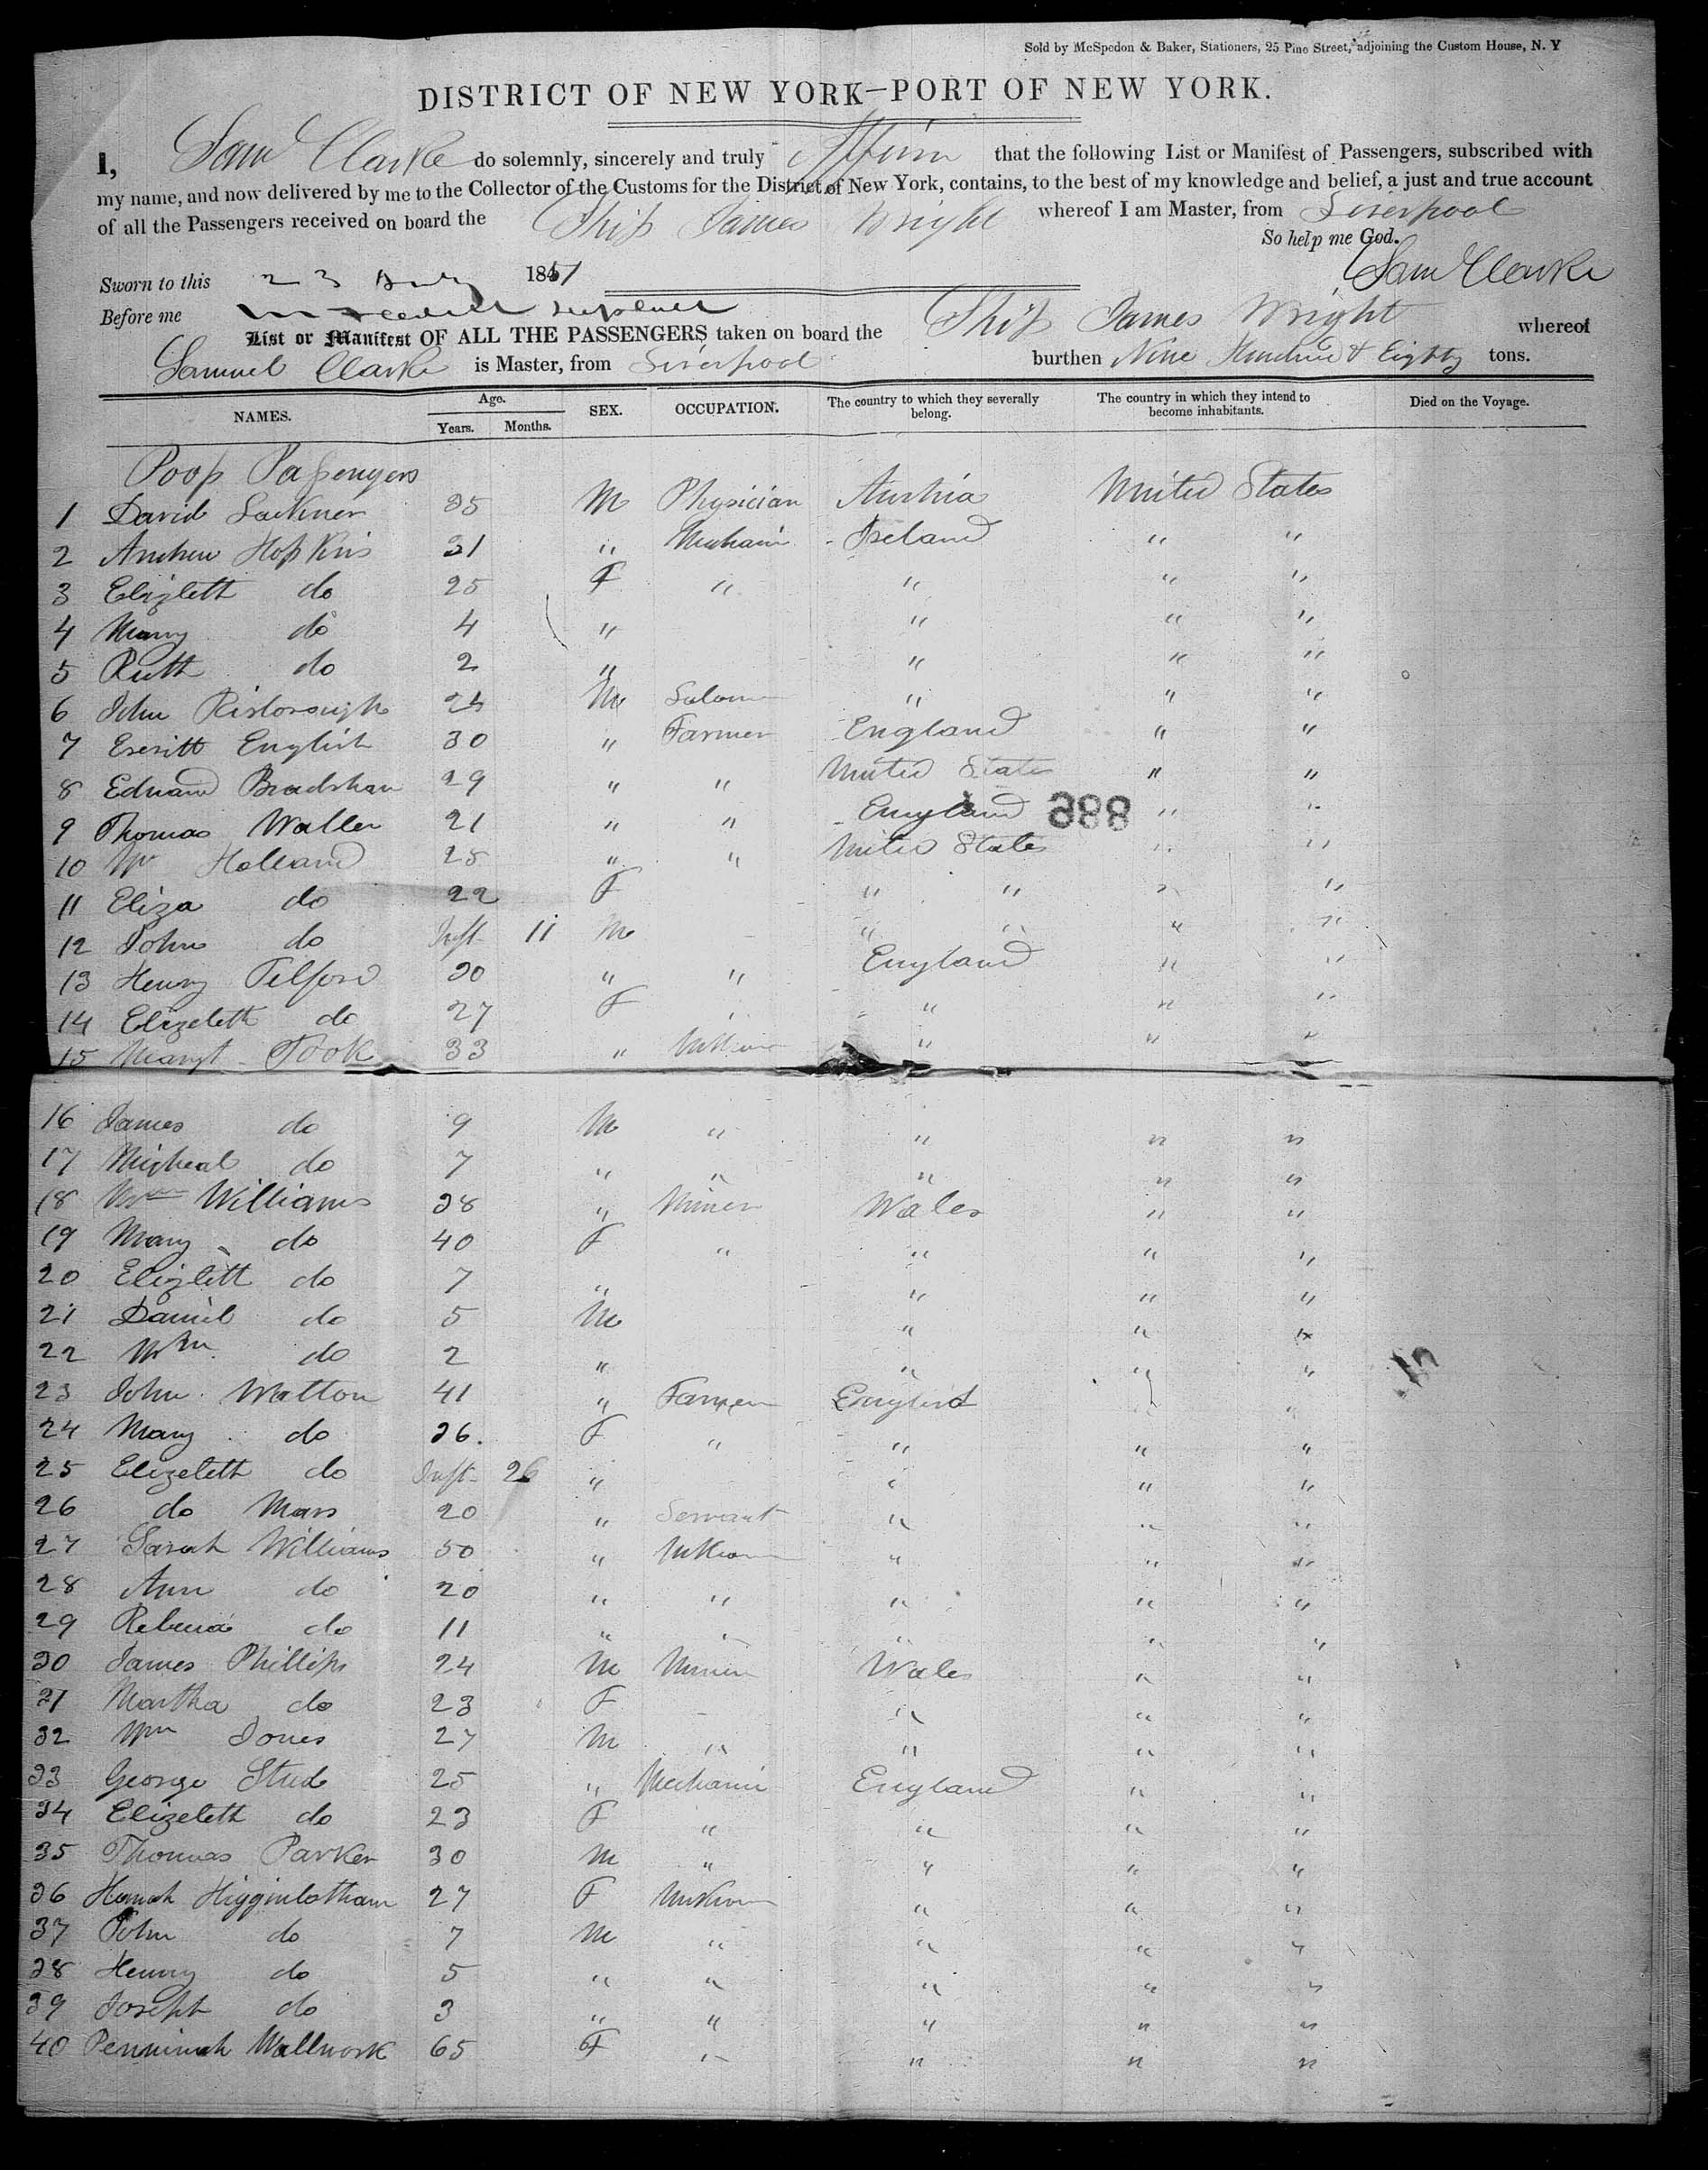 Sold by McSpedon & Baker, Stationers, 25 Pine Street, adjoining the Custom House, N. Y
DISTRICT OF NEW YORK—PORT OF NEW YORK.
I, Saml Clarke do solemnly, sincerely and truly Affirm that the following List or Manifest of Passengers, subscribed with
my name, and now delivered by me to the Collector of the Customs for the District of New York, contains, to the best of my knowledge and belief, a just and true account
of all the Passengers received on board the Ship James Wright whereof I am Master, from Liverpool
So help me God.
Sworn to this 23 1851 Saml Clarke
Before me
List or Manifest OF ALL THE PASSENGERS taken on board the Ship James Wright whereof
Samuel Clarke is Master, from Liverpool burthen Nine Hundred & Eighty tons.
NAMES. Age. Years. Months. SEX. OCCUPATION. The country to which they severally belong. The country in which they intend to become inhabitants. Died on the Voyage.
Poop Passengers
1 David 35 M Physician Austria United States
2 Andrew Hopkins 31 " Mechanic Ireland " "
3 Elizbeth do 25 F " " " "
4 Mary do 4 " " " "
5 Ruth do 2 " " " "
6 John Risborough 24 M " " "
7 Everitt English 30 " Farmer England " "
8 Edward Bradshaw 29 " " United States " "
9 Thomas Waller 21 " " England " "
988
10 Wm Holland 25 " " United States " "
11 Eliza do 22 F " " " "
12 John do Inft 11 M " " " "
13 Henry Telford 30 " " England " "
14 Elizebeth do 27 F " " " "
15 Margt Took 33 " Unknown " " "
16 James do 9 M " " " "
17 Micheal do 7 " " " " "
18 Wm Williams 38 " Miner Wales " "
19 Mary do 40 F " " " "
20 Elizbett do 7 " " " "
21 Daniel do 5 M " " "
22 Wm do 2 " " " "
23 John Walton 41 " Farmer England " "
24 Mary do 36. F " " " "
25 Elizebeth do Inft 26 " " " "
26 do Mars 20 " Servant " " "
27 Sarah Williams 50 " Unknown " " "
28 Ann do 20 " " " " "
29 Rebecca do 11 " " " " "
30 James Phillips 24 M Miner Wales " "
31 Martha do 23 F " " " "
32 Wm Jones 27 M " " " "
33 George Stud 25 " Mechanic England " "
34 Elizebeth do 23 F " " " "
35 Thomas Parker 30 M " " " "
36 Hanah Higginbotham 27 F Unknown " " "
37 John do 7 M " " " "
38 Henry do 5 " " " " "
39 Joseph do 3 " " " " "
40 Penninah Wallwork 65 F " " " "